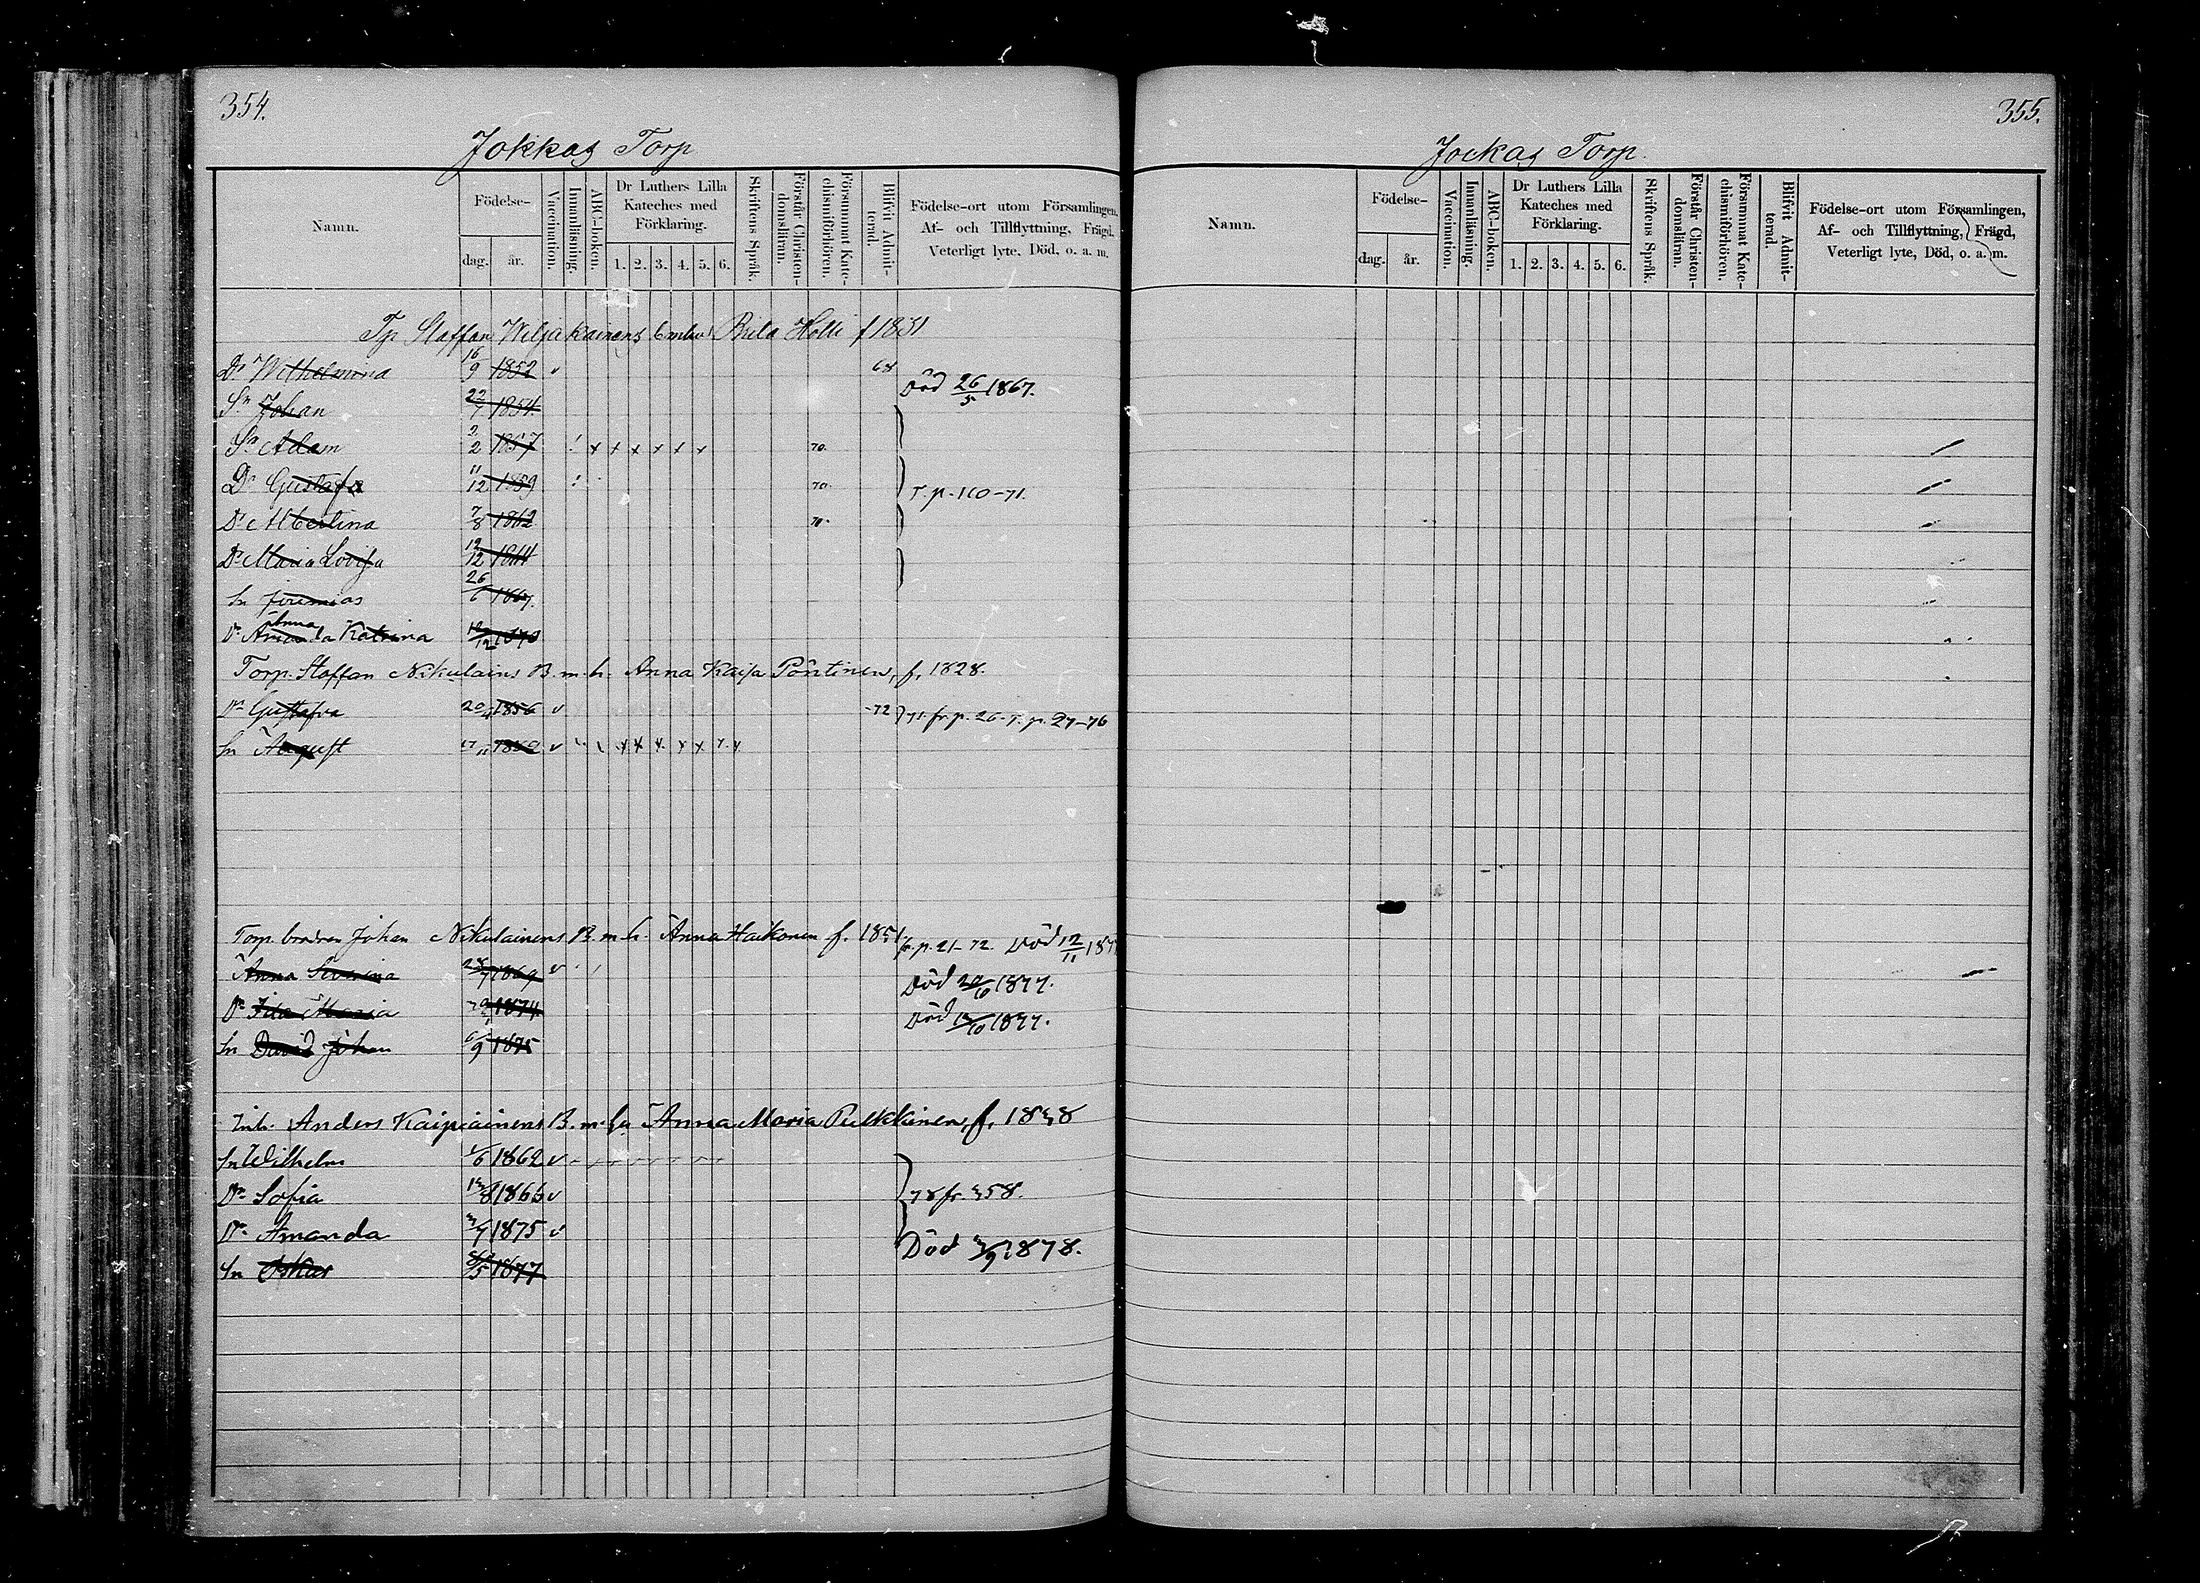 354.
Jokkas Torp
Namn.
Födelse-
dag. år.
Vaccination.
Innanläsning.
ABC-boken.
Dr Luthers Lilla Kateches med Förklaring.
1. 2. 3. 4. 5. 6.
Skriftens Språk.
Förstår Christendomsläran.
Försummat Katechismiförhören.
Blifvit Admitterad.
Födelse-ort utom Församlingen,
Af- och Tillflyttning, Frägd,
Veterligt lyte, Död, o. a. m.
Tp Staffan Wiljakainens Brita Holli f 1831
Dr Wilhelmina 16/9 1852 v 68
Sn Johan 22/7 1854 Död 26/5 1867.
Sn Adam 2/2 1857 ! x x x x x x 70.
Dr Gustafva 11/12 1859 70. T. p. 110-71.
Dr Albertina 7/8 1862 70.
Dr Maria Lovisa 12/12 1864
Sn Jeremias 26/6 1867.
Dr Anna Amanda Katrina
Torp. Staffan Nikulains B. m. h. Anna Kaisa Pöntinen, f. 1828.
Dr Gustafva 20/4 1856 v -72 71 fr. p. 26. T. p. 27-76
Sn August v x x x x x x x
Torp. brodren Johan Nikulainens B. m. h. Anna Haikonen f. 1851. fr. p. 21-72. Död 12/11
Anna 28/7 1869 v
Död 20/10 1877.
Dr Ida Maria 1874
Död 1877.
Sn David Johan 6/9 1875
Inh. Anders Kaipiainens B. m. h. Anna Maria Pulkkinen, f. 1838
Sn Wilhelm 1/6 1862 v
Dr Sofia 13/8 1866 v 78 fr 358.
Dr Amanda 3/7 1875 v
Död 3/9 1878.
Sn Oskar 1877
355.
Jockas Torp.
Namn.
Födelse-
dag. år.
Vaccination.
Innanläsning.
ABC-boken.
Dr Luthers Lilla Kateches med Förklaring.
1. 2. 3. 4. 5. 6.
Skriftens Språk.
Förstår Christendomsläran.
Försummat Katechismiförhören.
Blifvit Admitterad.
Födelse-ort utom Församlingen,
Af- och Tillflyttning, Frägd,
Veterligt lyte, Död, o. a. m.